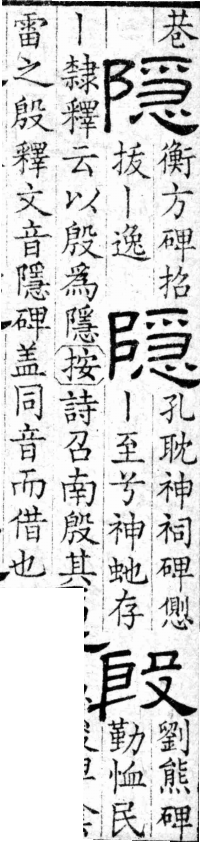 巷
隱
衡方碑招
拔丨逸
隱
孔耽神祠碑
丨至兮神虵存
殷
劉熊碑
勤恤民
丨隸釋云以殷為隱按詩召南殷其
雷之殷釋文音隱碑盖同音而借也